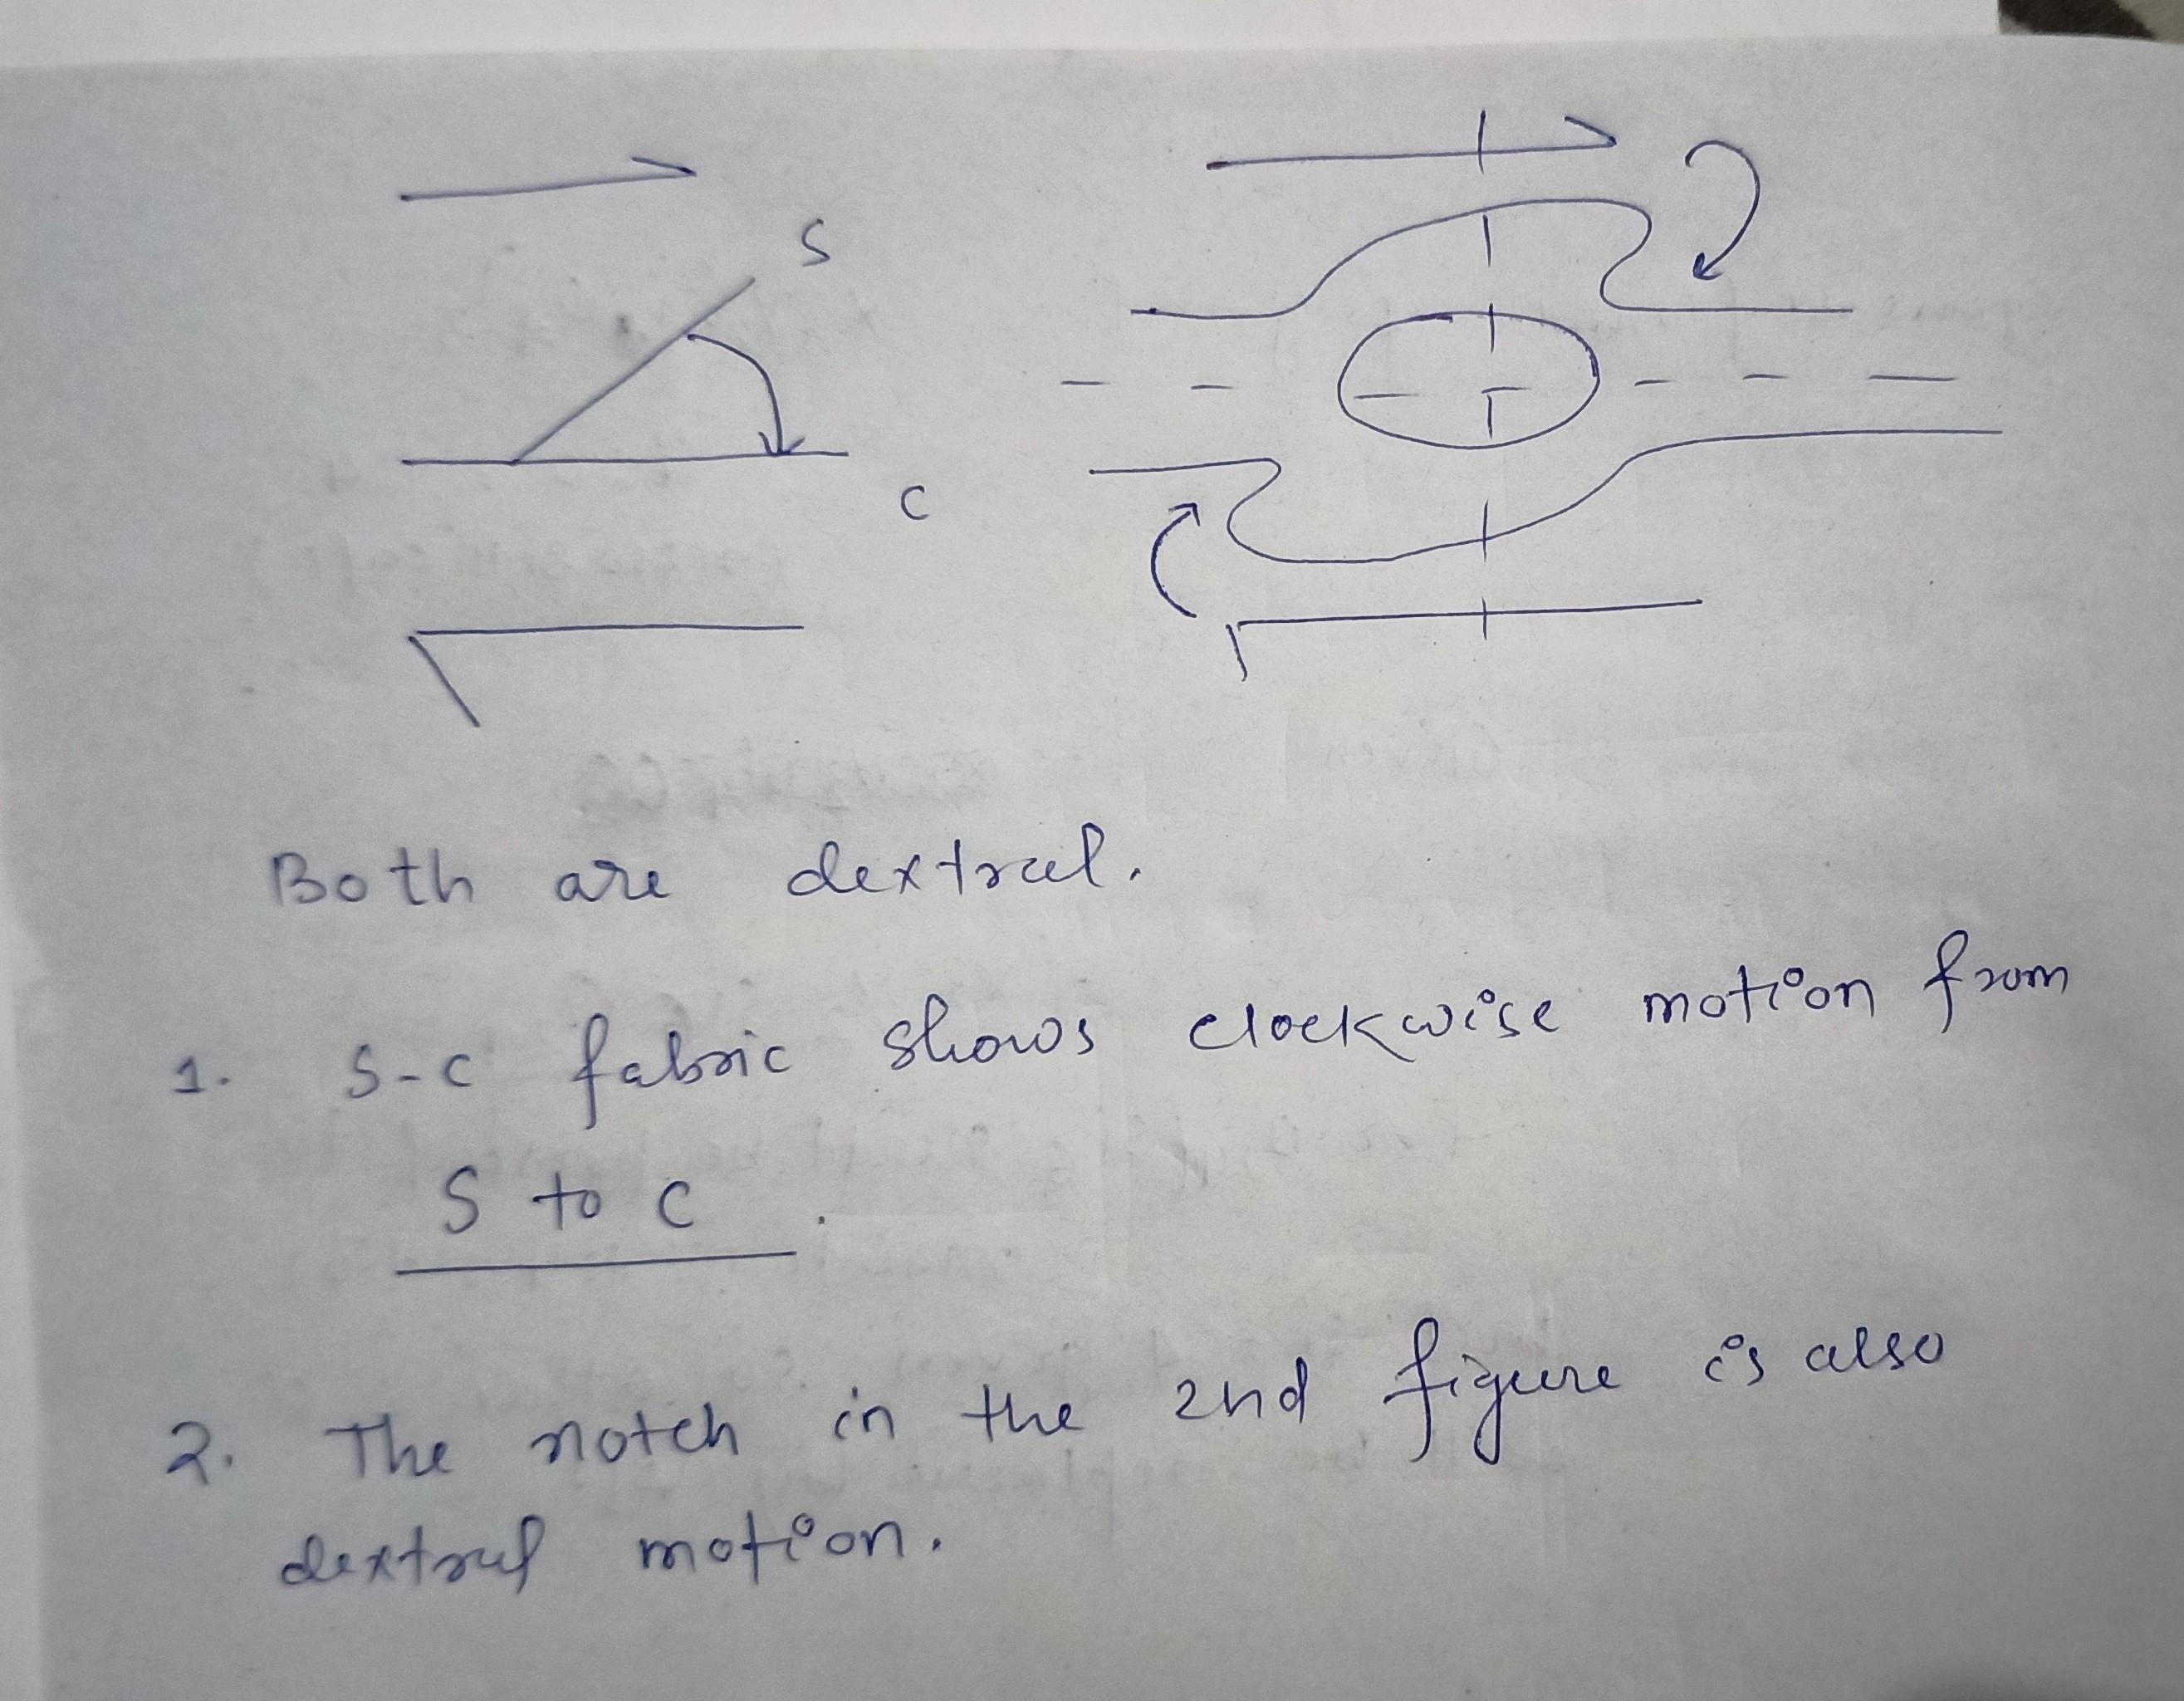 S
C
Both are dextral.
1. S-C fabric shows clockwise motion from
S to C
2. The notch in the 2nd figure is also
dextral motion.